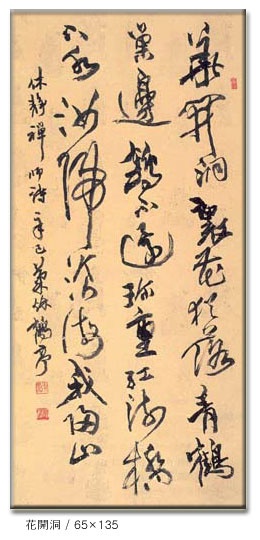 華開洞裏花猶落青鶴
巢邊鶴不還珍重紅流橋
下水汝歸滄海我歸山
休靜禪師詩辛巳鶴亭
花開洞 / 65×135